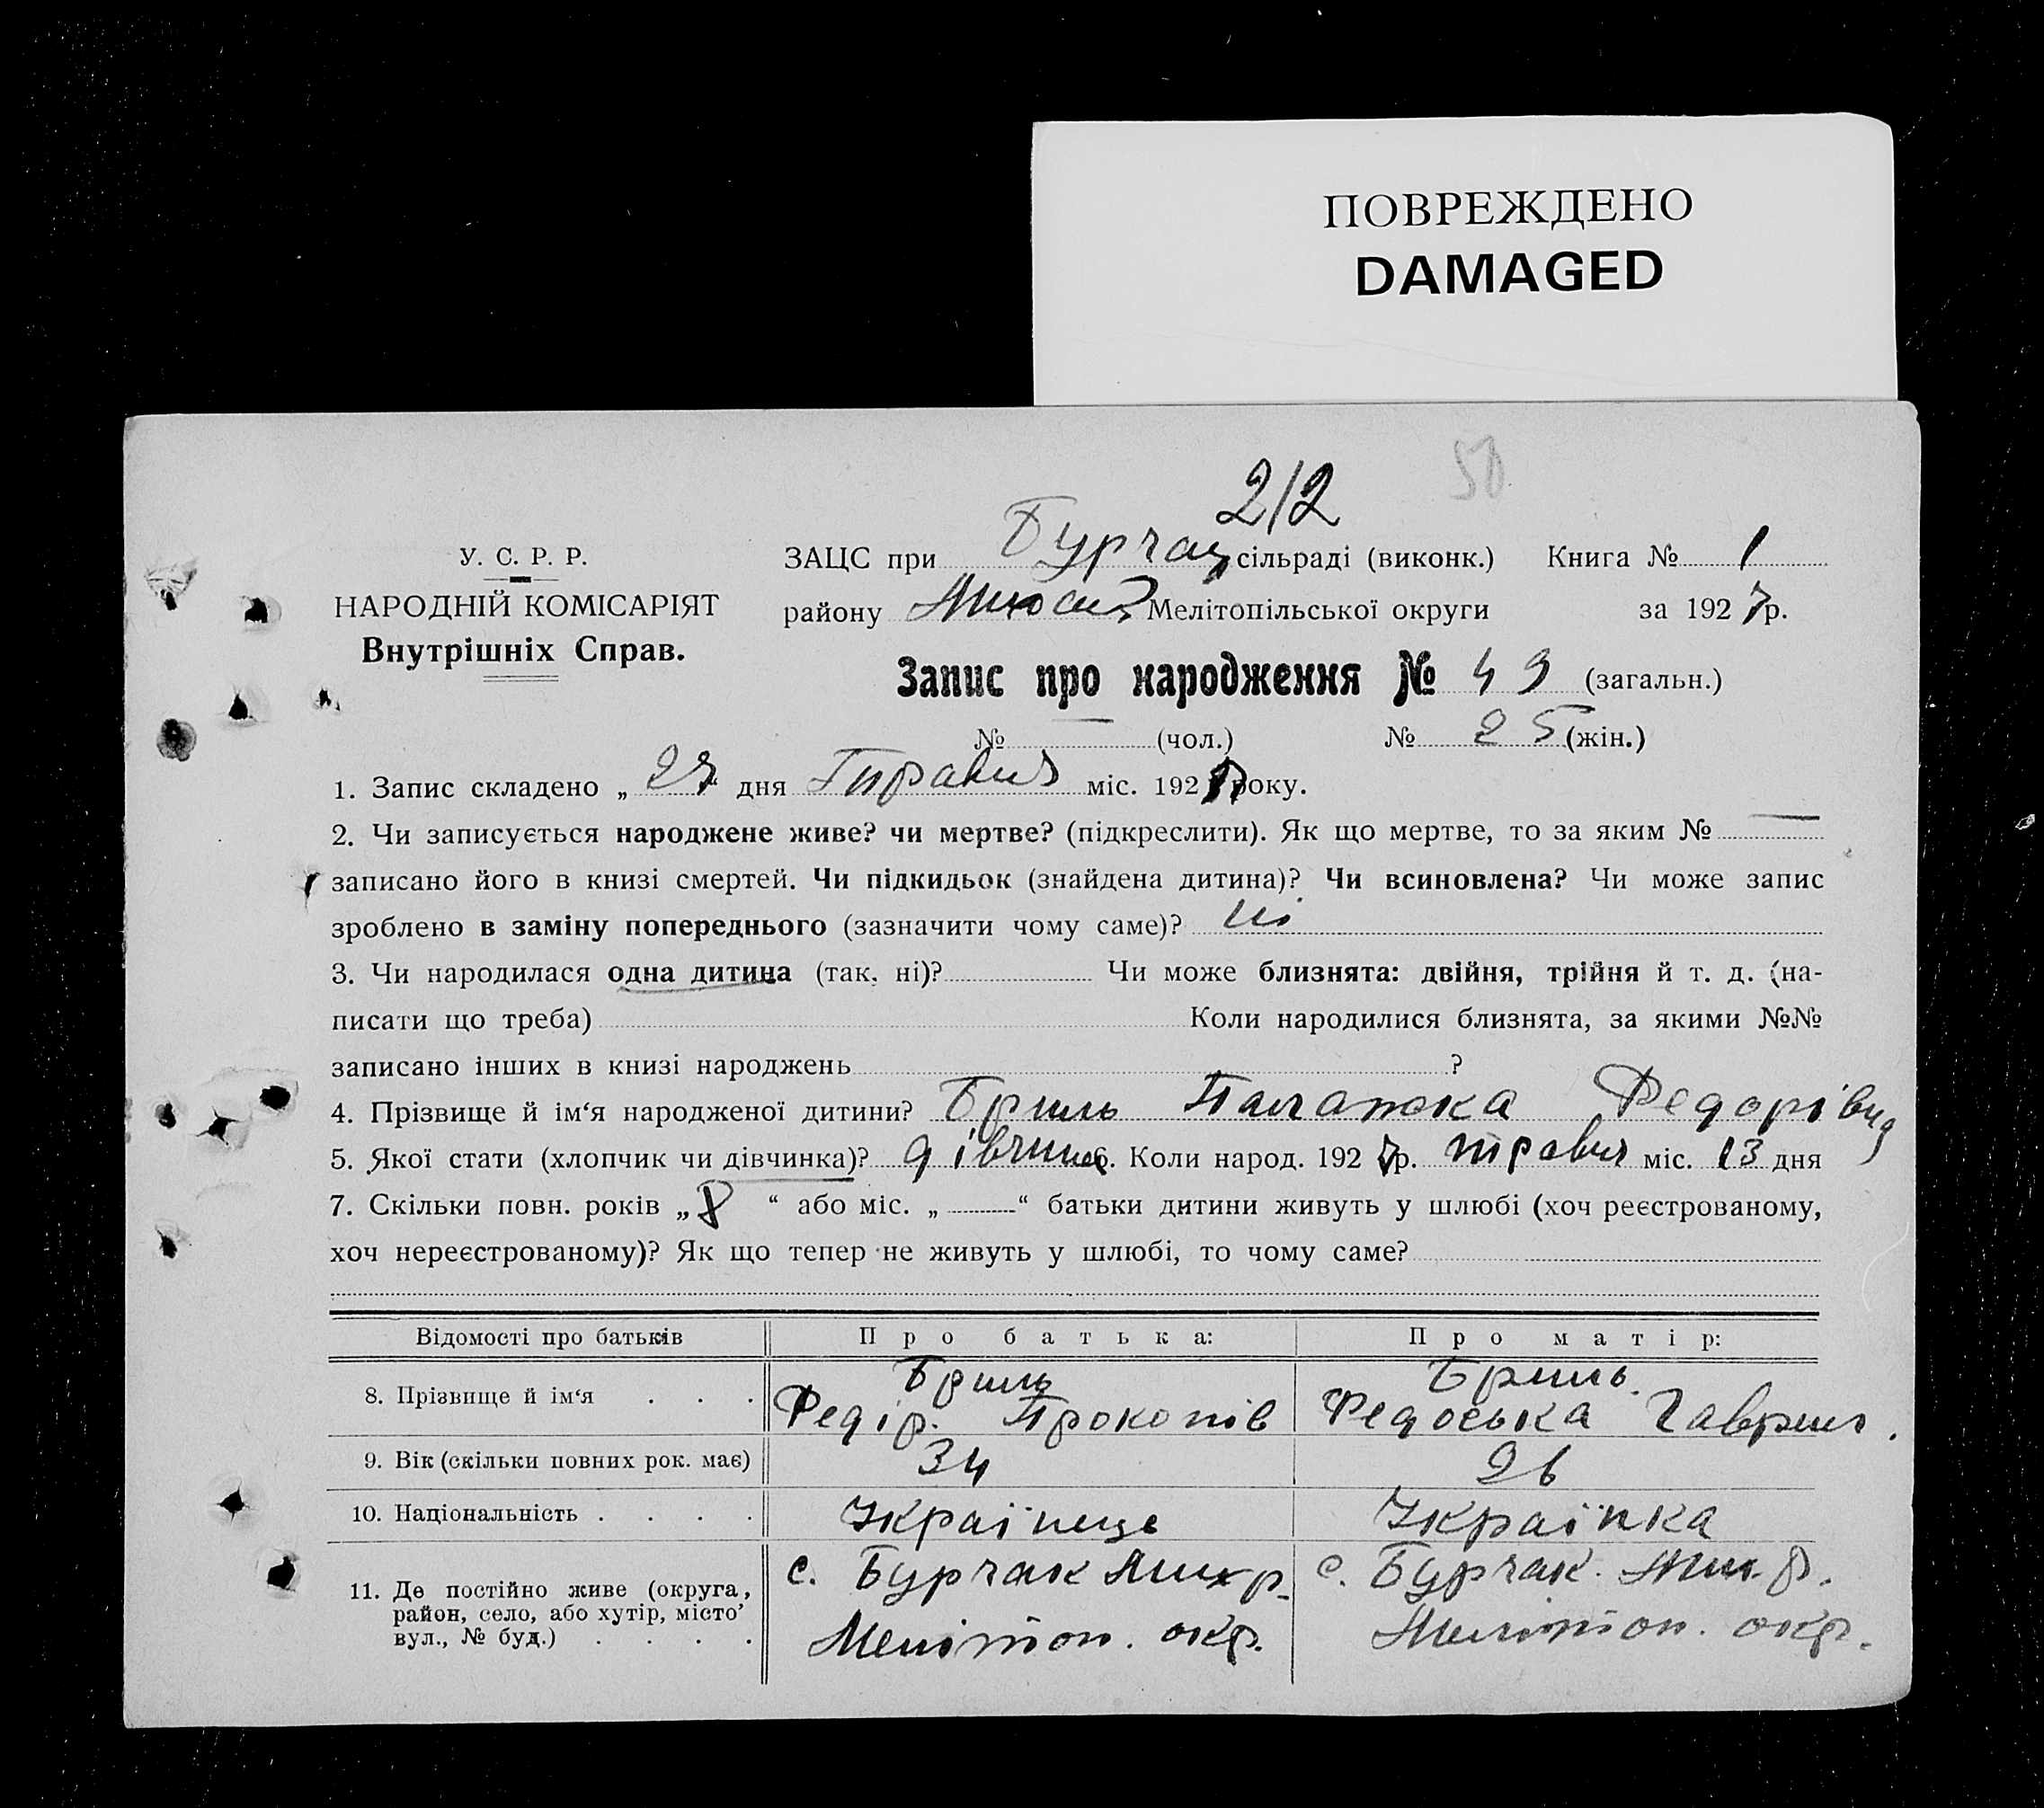 ПОВРЕЖДЕНО
DAMAGED
50
212
У. С. Р. Р.
НАРОДНІЙ КОМІСАРІЯТ
Внутрішніх Справ.
ЗАЦС при Бурчац сільраді (виконк.) Книга № 1
району Мелітопільської округи за 1927 р.
Запис про народження № 49 (загальн.)
№ — (чол.) № 25 (жін.)
1. Запис складено „27“ дня Травня міс. 1927 року.
2. Чи записується народжене живе? чи мертве? (підкреслити). Як що мертве, то за яким № —
записано його в книзі смертей. Чи підкидьок (знайдена дитина)? Чи всиновлена? Чи може запис
зроблено в заміну попереднього (зазначити чому саме)? ні
3. Чи народилася одна дитина (так, ні)? Чи може близнята: двійня, трійня й т. д. (на-
писати що треба) Коли народилися близнята, за якими №№
записано інших в книзі народжень ?
4. Прізвище й ім‘я народженої дитини? Бриль Палажка Федорівна
5. Якої стати (хлопчик чи дівчинка)? дівчина 6. Коли народ. 1927 р. травня міс. 13 дня
7. Скільки повн. років „8“ або міс. „—“ батьки дитини живуть у шлюбі (хоч реєстрованому,
хоч нереєстрованому)? Як що тепер не живуть у шлюбі, то чому саме?
Відомості про батьків Про батька: Про матір:
8. Прізвище й ім‘я . . . Бриль Федір. Прокопів Бриль. Федоська Гаврил.
9. Вік (скільки повних рок. має) 34 26
10. Національність . . . . Українець Українка
11. Де постійно живе (округа, район, село, або хутір, місто’ вул., № буд.) . . . . с. Бурчак Мих р. Мелітоп. окр. с. Бурчак. Мих. р. Мелітоп. окр.